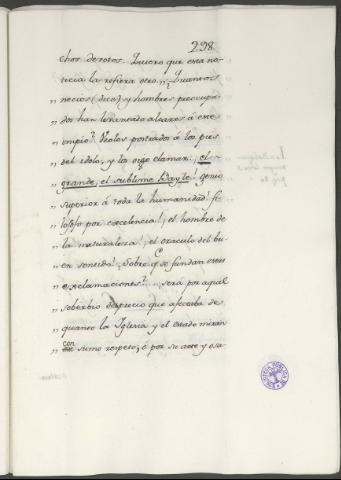 298.
chos devotos. Quiero que esta no-
ticia la refiera otro „ ¿Quantos
„ necios (dice) y hombres preocupa-
„ dos han levantado altares á este
„ impío? Veolos postrados á los pies
„ del idolo, y los oigo clamar: el
„ grande, el sublime Bayle! genio
„ superior á toda la humanidad! fi-
„ losofo por excelencia! el hombre de
„ la naturaleza! el oraculo del bu-
„ en sentido! ¿Sobre q.e se fundan estas
„ exclamaciones? será por aquel
„ soberbio desprecio que afectaba de
„ quanto la Iglesia y el estado miran
„ con sumo respeto; ó por su arte y osa-